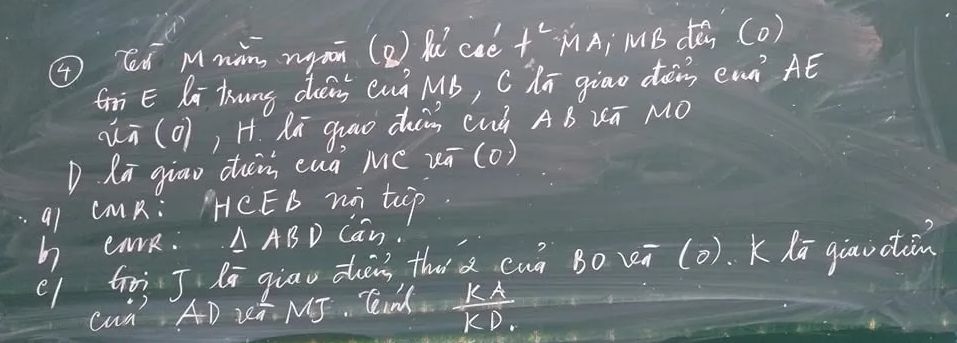 ④ Từ M nằm ngoài (O) kẻ các t² MA; MB đến (O)
Gọi E là trung điểm của MB, C là giao điểm của AE
và (O), H là giao điểm của AB và MO
D là giao điểm của MC và (O)
a) CMR: HCEB nội tiếp.
b) CMR: Δ ABD cân.
c) Gọi J là giao điểm thứ 2 của BO và (O). K là giao điểm
của AD và MJ. Tính KA/KD.